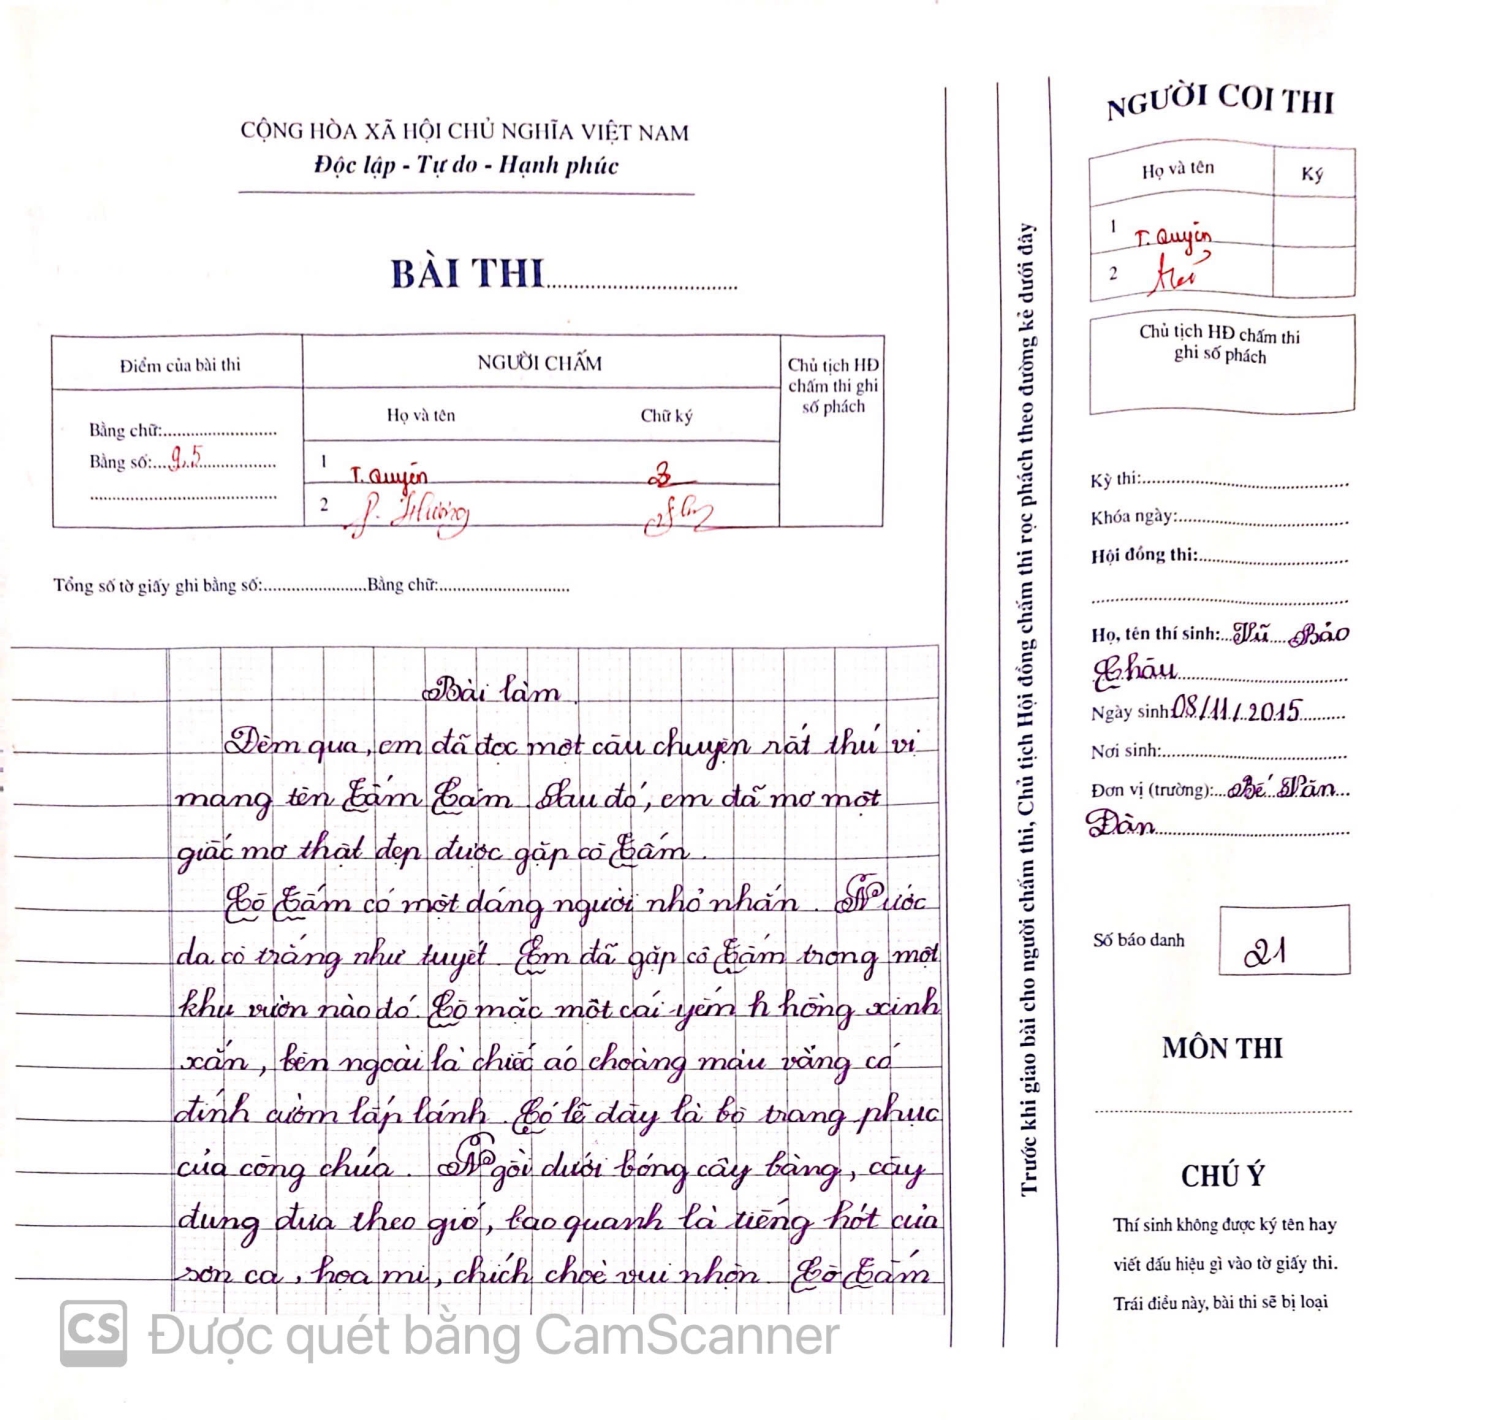 CỘNG HÒA XÃ HỘI CHỦ NGHĨA VIỆT NAM
Độc lập - Tự do - Hạnh phúc
BÀI THI
Điểm của bài thi
NGƯỜI CHẤM
Chủ tịch HĐ
chấm thi ghi
số phách
Họ và tên
Chữ ký
Bằng chữ:
Bằng số: 9,5
1 T. Quyên
2 P. Hương
Tổng số tờ giấy ghi bằng số: Bằng chữ:
Bài làm.
Đêm qua, em đã đọc một câu chuyện rất thú vị
mang tên Tấm Cám. Sau đó, em đã mơ một
giấc mơ thật đẹp được gặp cô Tấm.
Cô Tấm có một dáng người nhỏ nhắn. Nước
da cô trắng như tuyết. Em đã gặp cô Tấm trong một
khu vườn nào đó. Cô mặc một cái yếm h hồng xinh
xắn, bên ngoài là chiếc áo choàng màu vàng có
đính cườm lấp lánh. Có lẽ đây là bộ trang phục
của công chúa. Ngồi dưới bóng cây bàng, cây
đung đưa theo gió, bao quanh là tiếng hót của
sơn ca, họa mi, chích choè vui nhộn. Cô Tấm
Trước khi giao bài cho người chấm thi, Chủ tịch Hội đồng chấm thi rọc phách theo đường kẻ dưới đây
NGƯỜI COI THI
Họ và tên
Ký
1 T. Quyên
2
Chủ tịch HĐ chấm thi
ghi số phách
Kỳ thi:
Khóa ngày:
Hội đồng thi:
Họ, tên thí sinh: Vũ Bảo
Châu
Ngày sinh: 08/11/2015
Nơi sinh:
Đơn vị (trường): Bế Văn
Đàn
Số báo danh
21
MÔN THI
CHÚ Ý
Thí sinh không được ký tên hay
viết dấu hiệu gì vào tờ giấy thi.
Trái điều này, bài thi sẽ bị loại
CS Được quét bằng CamScanner